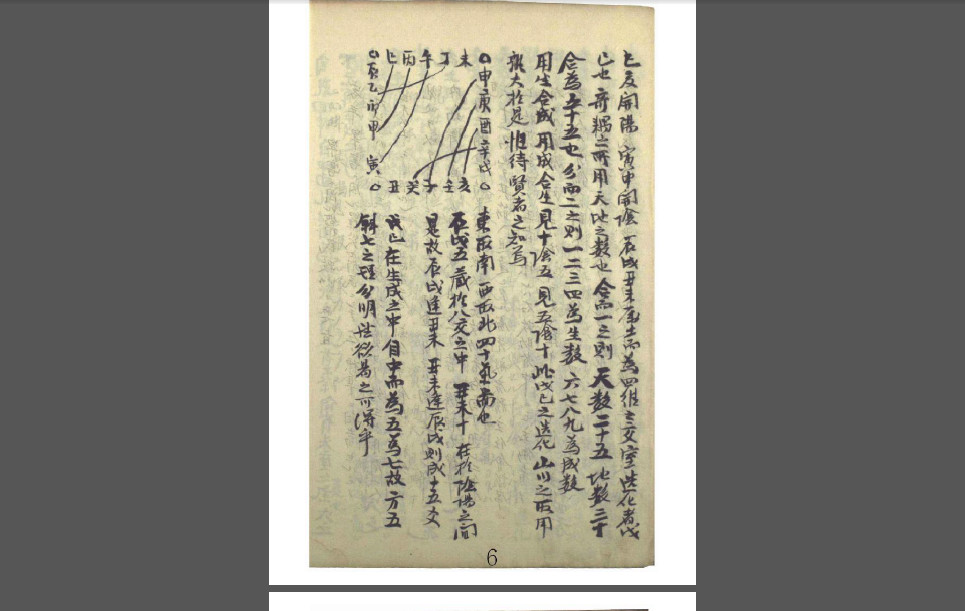 亥開陽 寅申開陰 辰戌丑未屬土而為四維之交室 造化者戊
己也 奇耦之所用 天地之數也 合而一之則 天數二十五 地數三十
合為五十五也 分而二之則 一二三四為生數 六七八九為成數
用生合成 用成合生 見十陰五 見五陰十 此戊己之造化 山川之取用
大於是 惟待賢者之知焉
未 丁 午 丙 巳
申庚酉辛戌
辰乙卯甲 寅
亥 壬 子 癸 丑
東取南 西取北 四十氣而也
辰戌五 藏於八交之中 丑未十 在於陰陽之間
是故辰戌逢丑未 丑未逢辰戌則成十五交
戊己在生成之中 自中而為五為七故 方五
斜七之理分明 欲易之可得乎
6